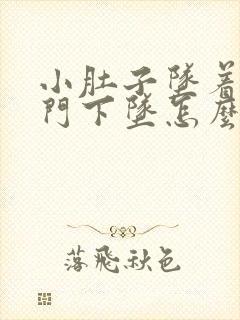 小肚子墜着
門下墜怎麼
落飛秋色